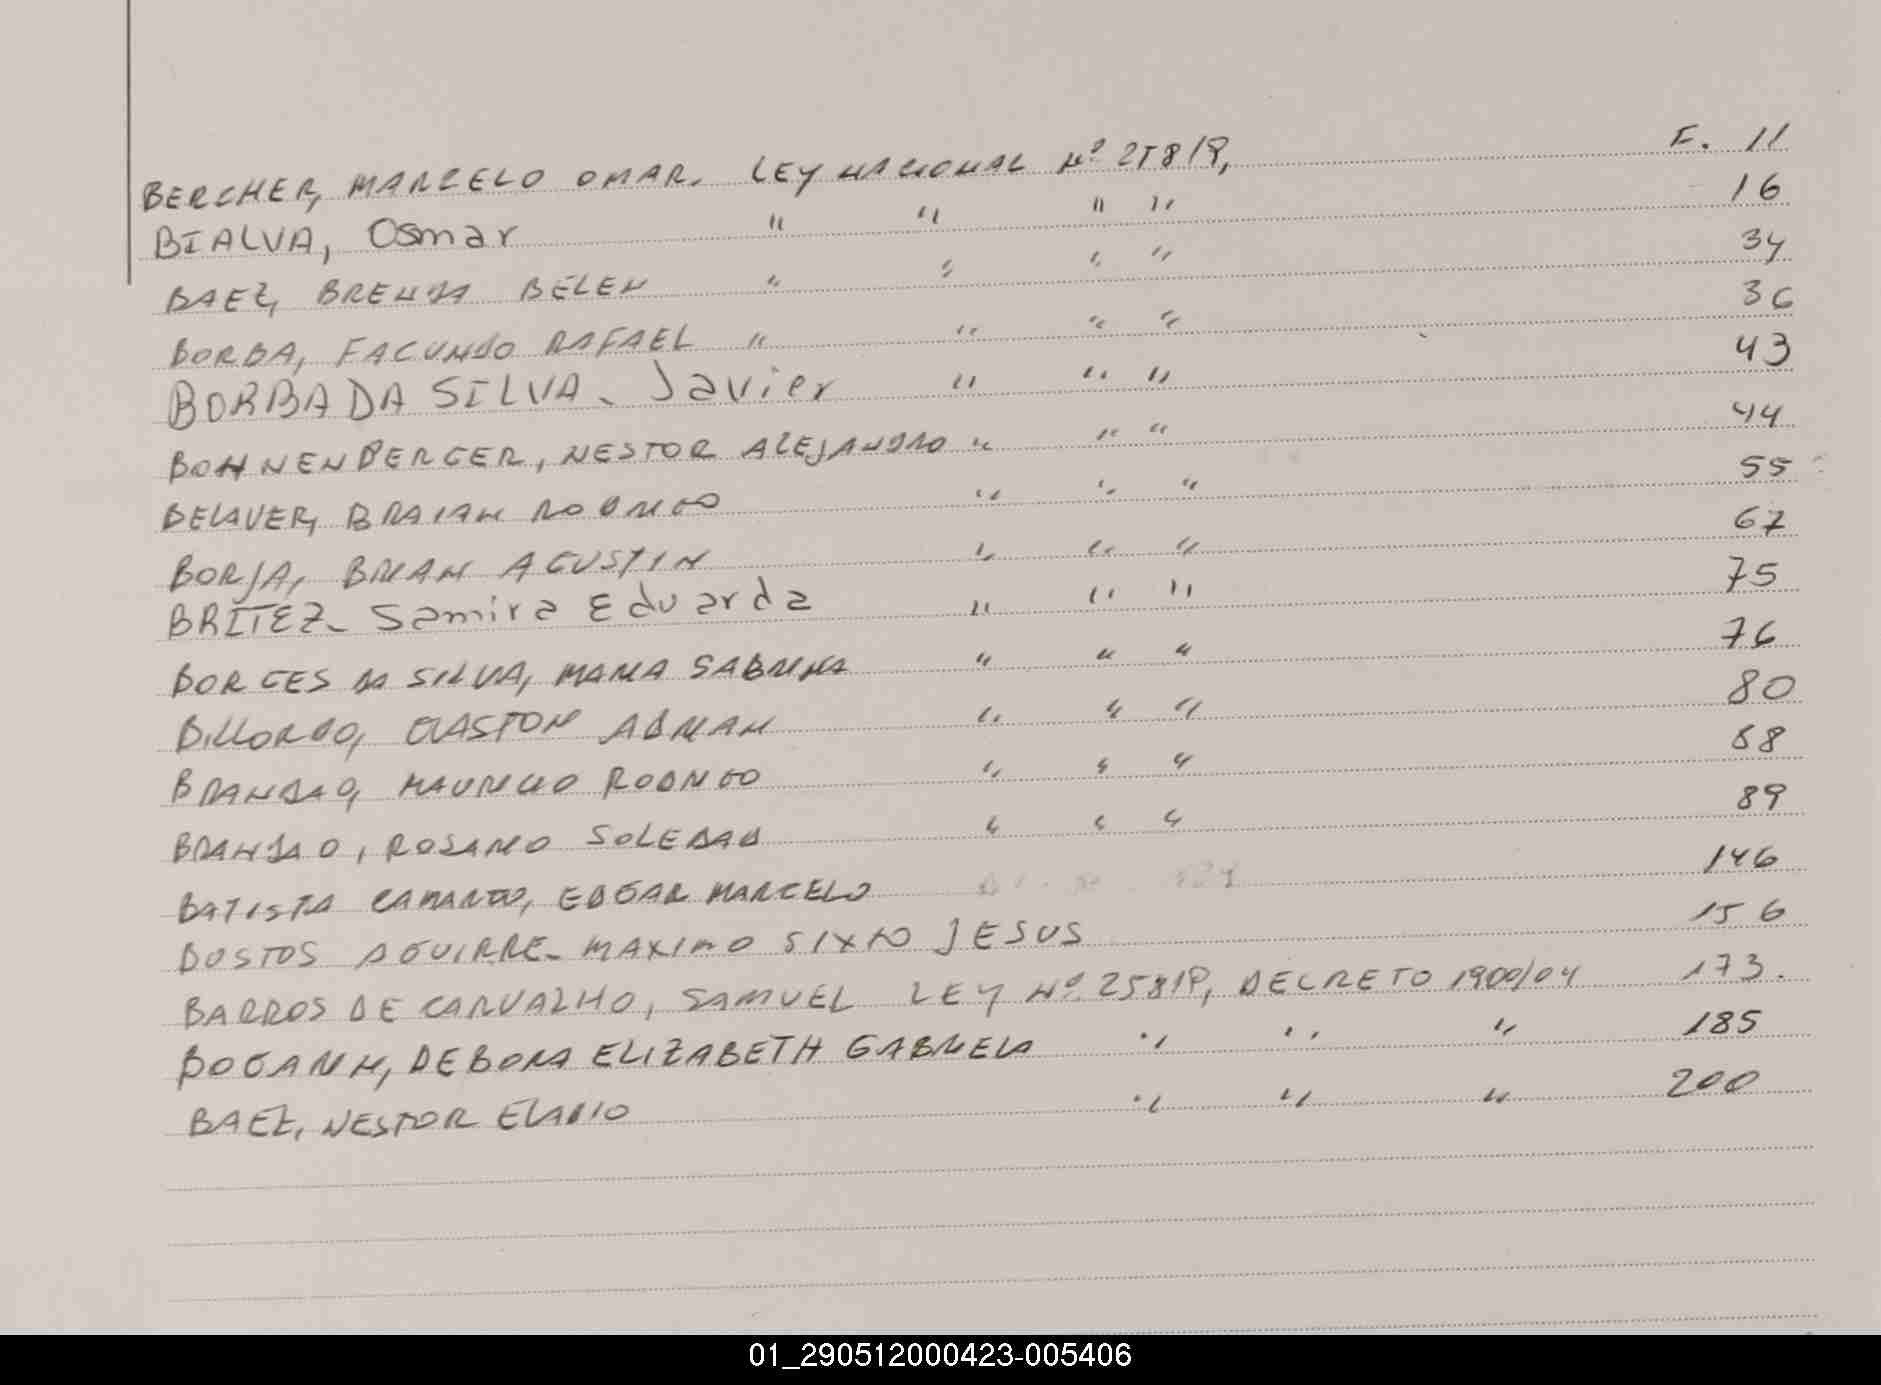 BERCHER, MARCELO OMAR. LEY NACIONAL Nº 25819, F. 11
BIALVA, Osmar " " " " 16
BAEZ, BRENDA BELEN " " " " 34
BORBA, FACUNDO RAFAEL " " " " 36
BORBA DA SILVA - Javier " " " 43
BOHNENBERGER, NESTOR ALEJANDRO " " " 44
BELAVER, BRAIAN RODRIGO " " " 55
BORJA, BRIAN AGUSTIN " " " 67
BRITEZ - Samira Eduarda " " " 75
BORGES DA SILVA, MARIA SABRINA " " " 76
BILLORDO, GASTON ADRIAN " " " 80
BRANDAO, MAURICIO RODRIGO " " " 88
BRANDAO, ROSARIO SOLEDAD " " " 89
BATISTA CAMARGO, EDGAR MARCELO 146
BUSTOS AGUIRRE - MAXIMO SIXTO JESUS 156
BARROS DE CARVALHO, SAMUEL LEY Nº 25819, DECRETO 1900/04 173.
BOGANN, DEBORA ELIZABETH GABRIELA " " " 185
BAEZ, NESTOR ELADIO " " " 200
01_290512000423-005406